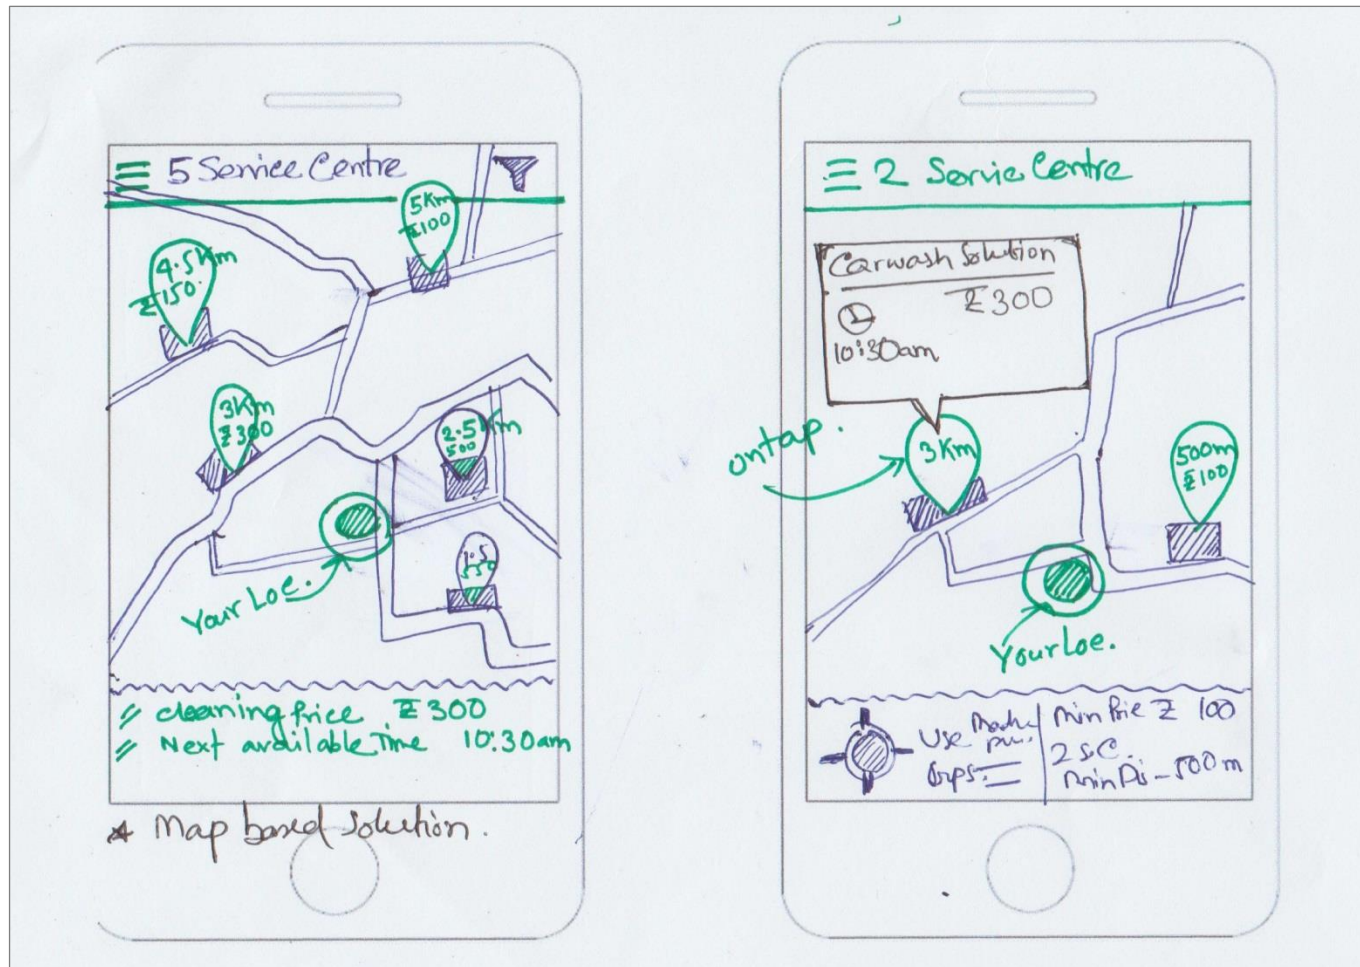 5 Service Centre
5Km
₹100
4.5Km
₹150.
3Km
₹300
2.5Km
500
1.5
Your Loc.
cleaning Price ₹ 300
Next available Time 10:30am
* Map based solution.
2 Servie Centre
Carwash Solution
₹300
10:30am
ontap.
3Km
500m
₹100
Your Loc.
Use
Gps.
Min Prie ₹ 100
2 S.C.
Min Dis - 500m